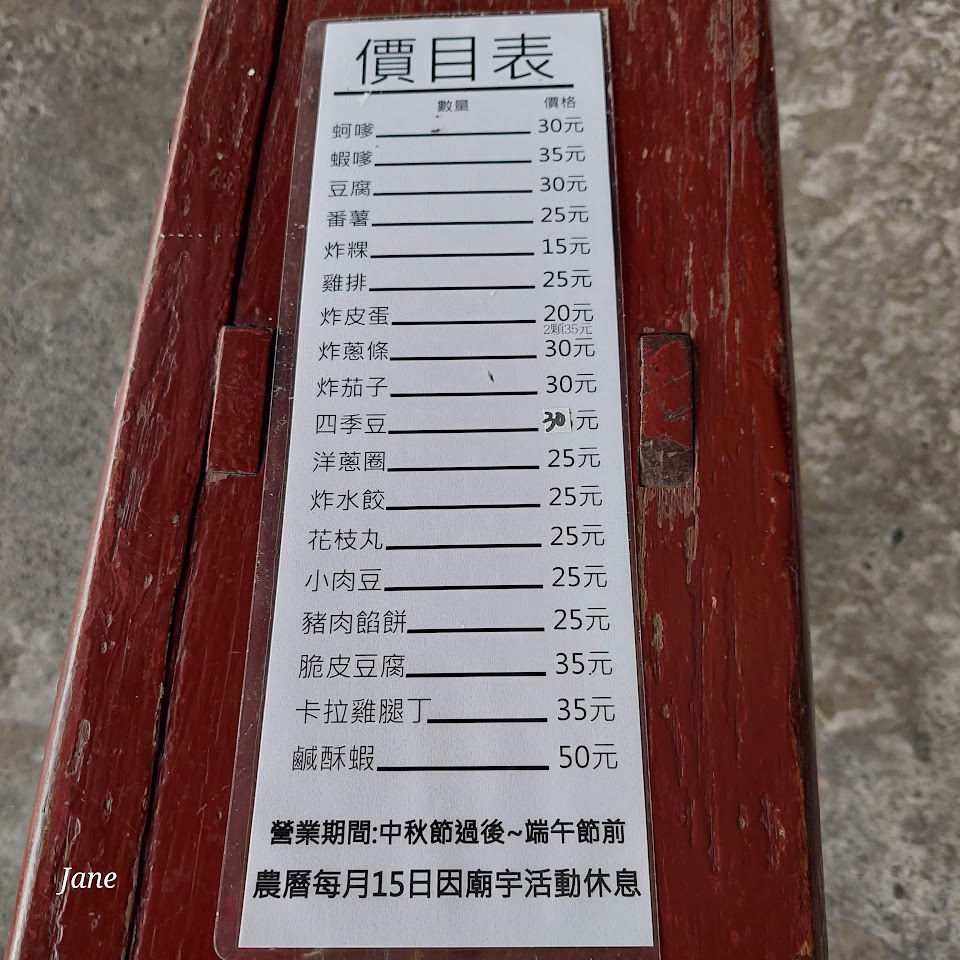 價目表
數量 價格
蚵嗲 30元
蝦嗲 35元
豆腐 30元
番薯 25元
炸粿 15元
雞排 25元
炸皮蛋 20元
2顆35元
炸蔥條 30元
炸茄子 30元
四季豆 30元
洋蔥圈 25元
炸水餃 25元
花枝丸 25元
小肉豆 25元
豬肉餡餅 25元
脆皮豆腐 35元
卡拉雞腿丁 35元
鹹酥蝦 50元
營業期間:中秋節過後~端午節前
農曆每月15日因廟宇活動休息
Jane